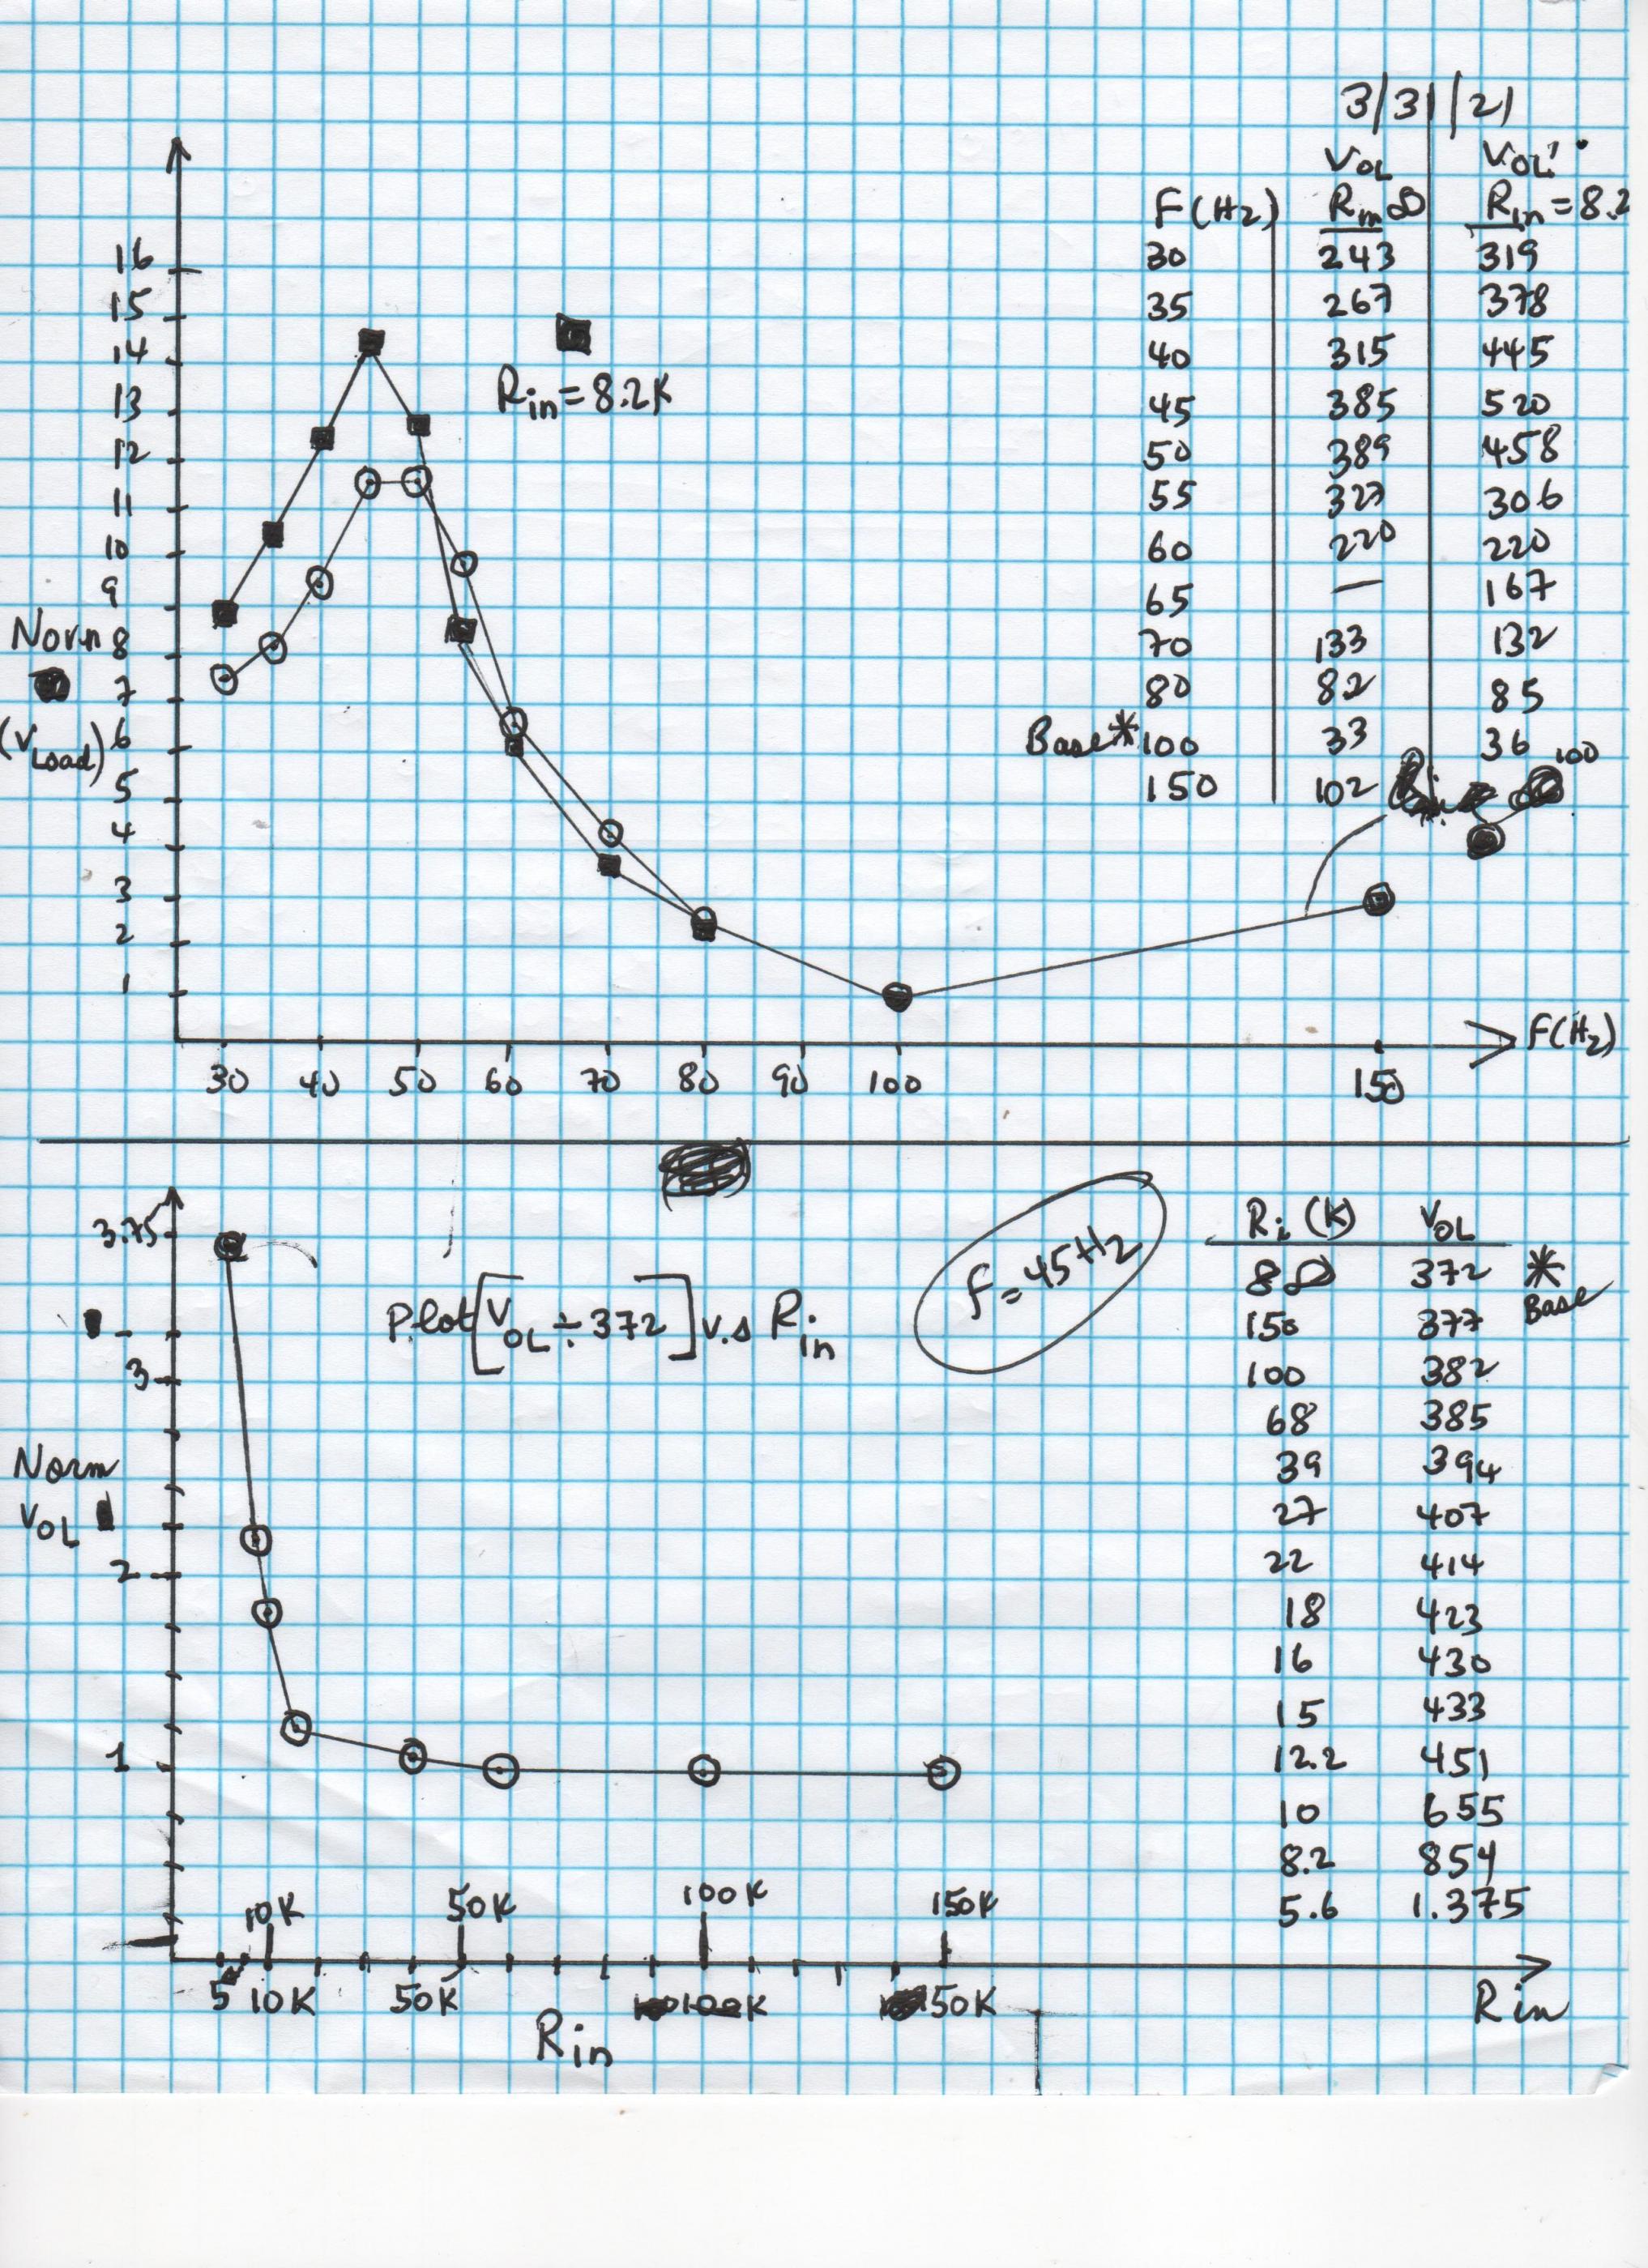 3/31/21
VOL VOL'
F(Hz) Rin ∞ Rin = 8.2
30 243 319
35 267 378
40 315 445
45 385 520
50 389 458
55 327 306
60 220 220
65 — 167
70 133 132
80 82 85
Base * 100 33 36
150 102 100
16
15
14
13
12
11
10
9
8
7
6
5
4
3
2
1
Rin = 8.2K
Norm
(VLoad)
30 40 50 60 70 80 90 100 150
F(Hz)
3.75
3
2
1
Norm
VOL
Plot [VOL ÷ 372] v.s Rin
F = 45 Hz
Ri (K) VOL
∞ 372 * Base
150 377
100 382
68 385
39 394
27 407
22 414
18 423
16 430
15 433
12.2 451
10 655
8.2 854
5.6 1.375
10K 50K 100K 150K
5 10K 50K 100K 150K
Rin
Rin